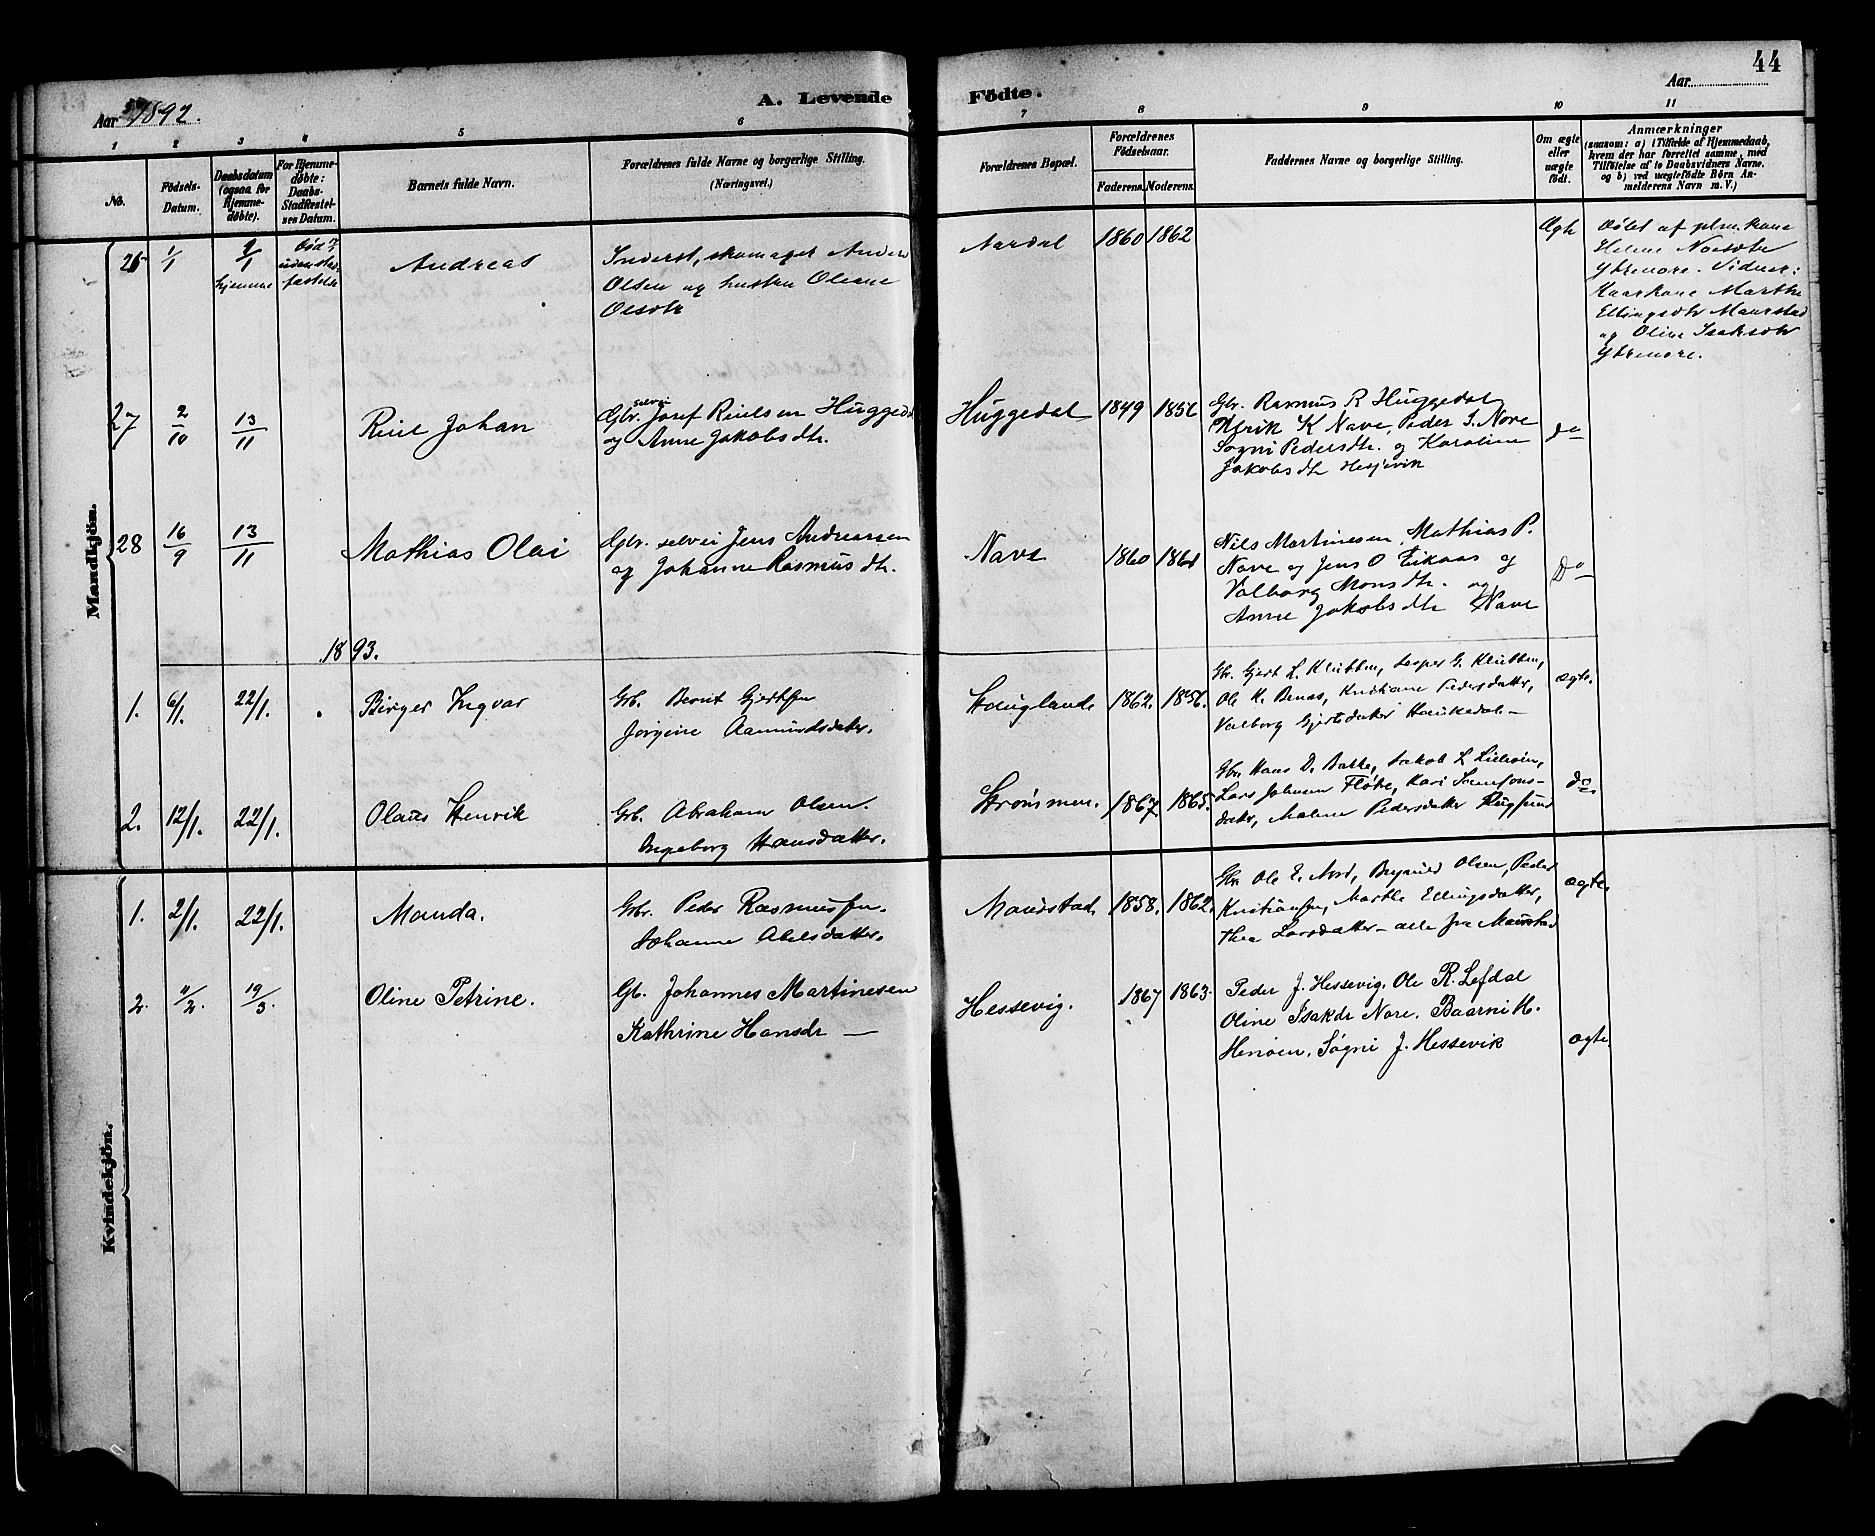 44
Aar 1892.
A. Levende Födte.
Aar
1 2 3 4 5 6 7 8 9 10 11
No.
Födsels-Datum.
Daabsdatum (ogsaa for Hjemme-döbte).
For Hjemme-döbte: Daabs-Stadfæstel-ses Datum.
Barnets fulde Navn.
Forældrenes fulde Navne og borgerlige Stilling.
(Næringsvei.)
Forældrenes Bopæl.
Forældrenes Födselsaar.
Faderens. Moderens.
Faddernes Navne og borgerlige Stilling.
Om ægte eller uægte födt.
Anmærkninger
(saasom: a) i Tilfælde af Hjemmedaab,
hvem der har forrettet samme, med
Tilföielse af to Daabsvidners Navne.
og b) ved uægtefödte Börn An-
melderens Navn m. V.)
Mandkjön.
26 1/1 9/1 hjemme
Andreas
Inderst, skomager Anders
Olsen og hustru Oleane
Olsdtr
Aardal 1860 1862
Ægte
Døbt af plm. kone
Helene
Ytrenore. Vidner:
Kaarkone Marthe
Ellingsdtr Maurstad
og Oline Isaksdtr
Ytrenore.
27 2/10 13/11
Riul Johan
Gbr. selvei Josef Riulsen Huggedal
og Anne Jakobsdtr.
Huggedal 1849 1856
Gbr. Rasmus R Huggedal,
Ulrik K Nave, Peder S. Nore
Sogni Pedersdtr. og Karoline
Jakobsdtr Hesjevik
do
28 16/9 13/11
Mathias Olai
Gbr. selvei Jens Andreassen
og Johanne Rasmusdtr.
Nave 1860 1861
Nils Martinesen, Mathias P.
Nave og Jens O Eikaas og
Valborg Monsdtr. og
Anne Jakobsdtr Nave
Do
1893.
1. 6/1. 22/1.
Birger Ingvar
Grb. Bernt Gjertsen
Jørgine Aamundsdatter.
Hauglande 1862. 1856.
Gbr. Gjert L. Klubben, Jesper G. Klubben,
Ole K. Kristiane Pedersdatter,
Valborg Gjertsdatter Haukedal -
ægte.
2. 12/1. 22/1.
Olaus Henrik
Grb. Abraham Olsen.
Ingeborg Hansdatter.
Strømmen. 1867 1865.
Gbr. Hans D. Bakke, Jakob L
Lars Johnsen Fløke, Kari Samsons-
datter, Malene Pedersdatter Rugsund
do.
Kvindekjön.
1. 2/1. 22/1.
Manda.
Grbr. Peder Rasmussen.
Johanne Abelsdatter.
Maurstad. 1858. 1862.
Gbr. Ole E. Nord, Olsen, Peder
Kristiansen, Marthe Ellingsdatter,
Thea Larsdatter - alle fra Maurstad
ægte.
2. 11/2. 19/3.
Oline Petrine.
Gb. Johannes Martinesen
Kathrine Hansdr —
Hessevig. 1867 1863.
Peder J. Hessevig, Ole R. Lefdal
Oline Isakdr Nore. Baarni H.
Henøen, Søgni J. Hessevik
ægte